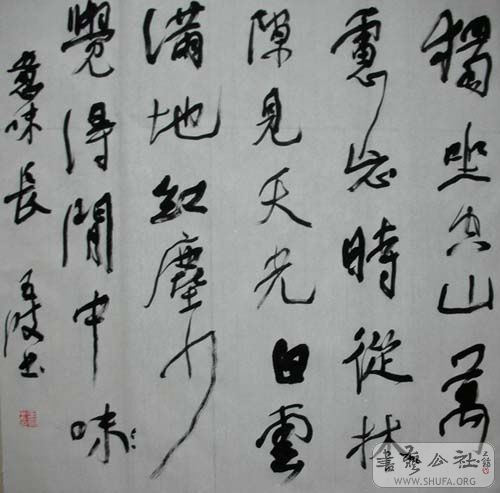 獨坐空山萬
慮忘時從林
隙見天光白雲
滿地紅塵少
覺得閒中味
意味長 王波书
書藝公社
WWW.SHUFA.ORG